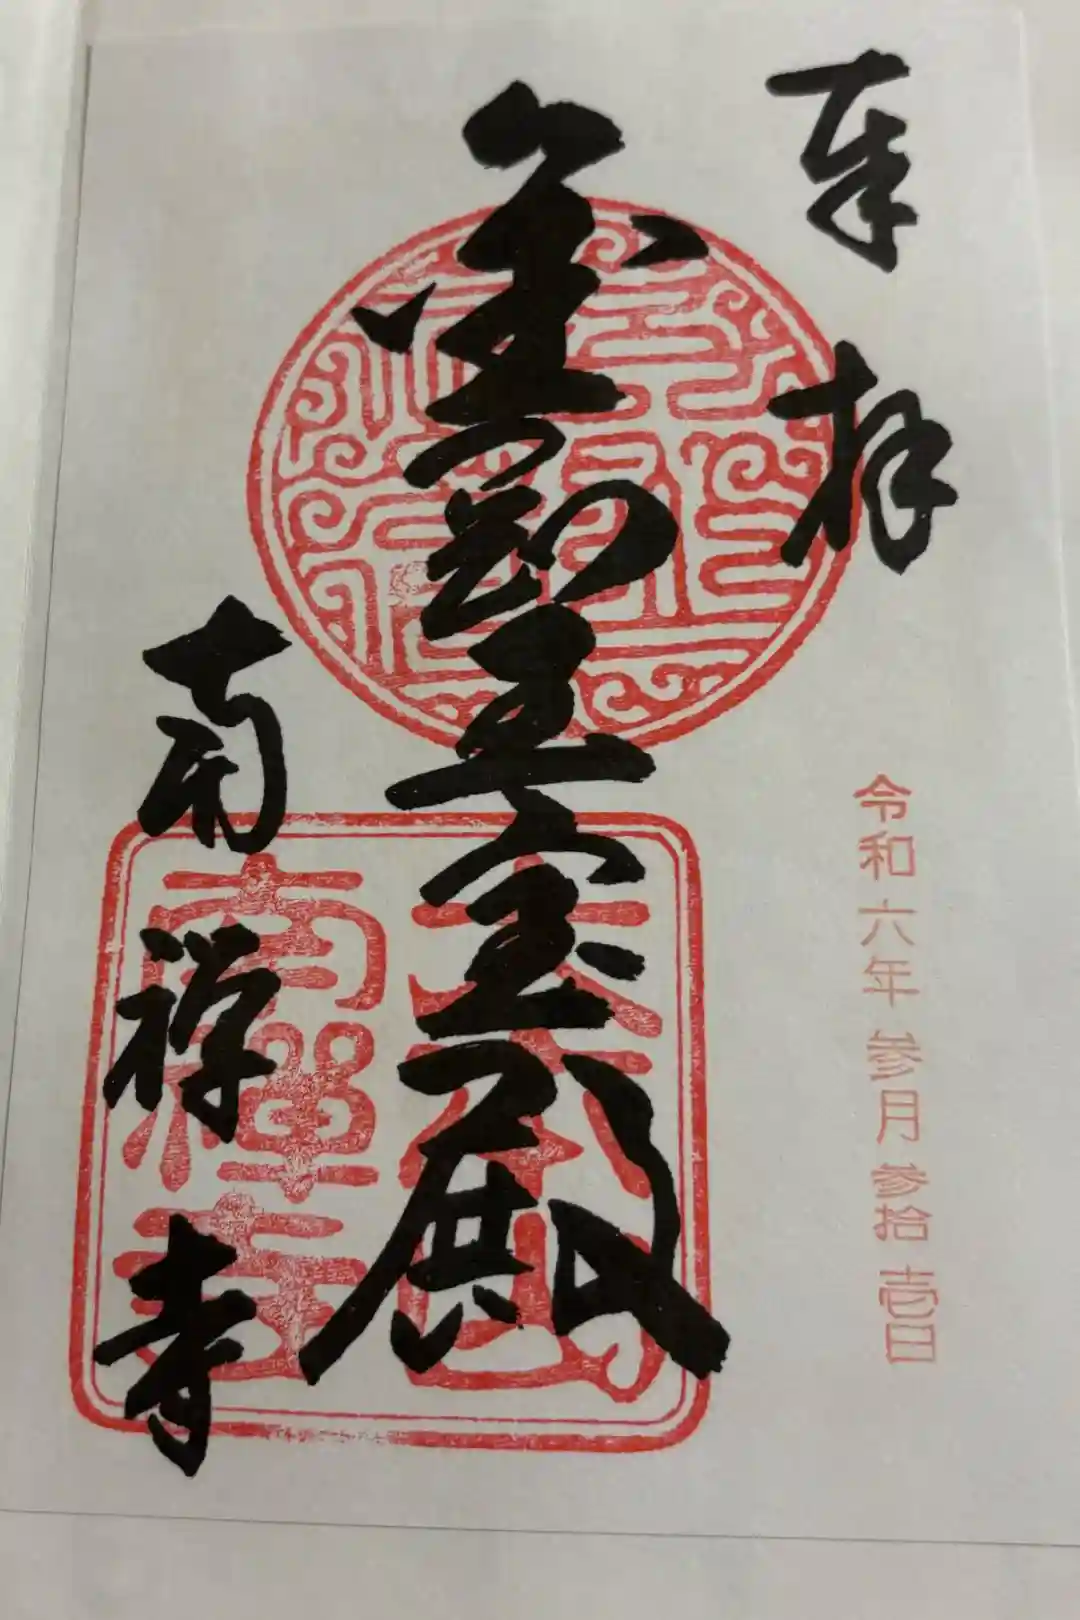 奉拝
令和六年参月参拾壱日
金剛王宝殿
南禅寺
南禪寺